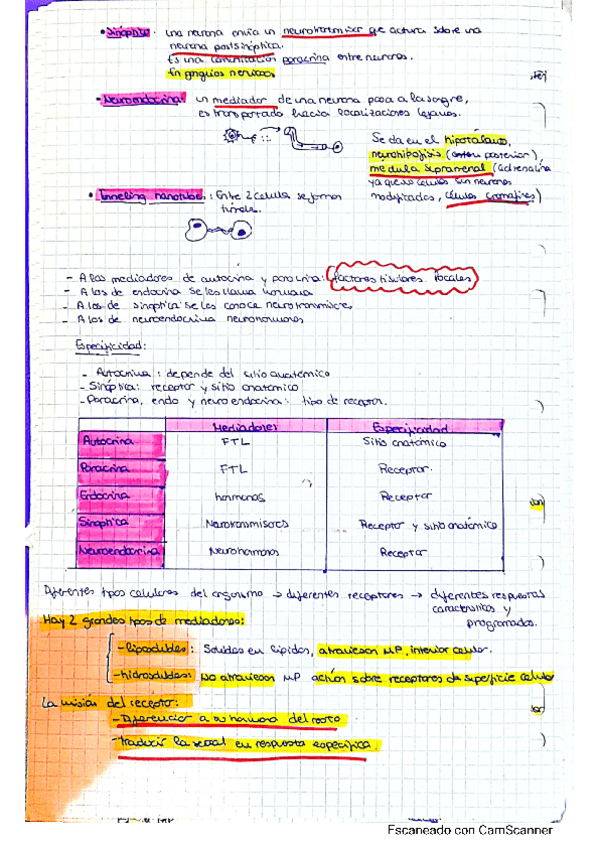 • Sináptica: una neurona envía un neurotransmisor que actúa sobre una
neurona postsináptica.
Es una comunicación paracrina entre neuronas.
En ganglios nerviosos
• Neuroendocrina: un mediador de una neurona pasa a la sangre,
es transportado hacia localizaciones lejanas.
Se da en el hipotálamo,
neurohipófisis ( posterior),
médula suprarrenal (adrenalina
ya que sus células son neuronas
modificadas, células cromafines)
• Tunneling nanotubes: Entre 2 celula se forman
túnele.
- A los mediadores de autocrina y paracrina: factores tisulares locales
- A los de endocrina se les llama hormona
- A los de sinaptica se les conoce neurotransmisores
- A los de neuroendocrina neurohormonas
Especificidad:
- Autocrina: depende del sitio anatómico
- Sináptica: receptor y sitio anatómico
- Paracrina, endo y neuroendocrina: tipo de receptor.
Mediadores Especificidad
Autocrina FTL Sitio anatómico
Paracrina FTL Receptor.
Endocrina hormonas Receptor
Sinaptica Neurotransmisores Receptor y sitio anatómico
Neuroendocrina Neurohormonas Receptor
Diferentes tipos celulares del organismo → diferentes receptores → diferentes respuestas
características y
programadas.
Hay 2 grandes tipos de mediadores:
- liposolubles: Solubles en lípidos, atraviesan MP, interior celular.
- hidrosolubles: No atraviesan MP actúan sobre receptores de superficie celular
La misión del receptor:
- Diferenciar a su hormona del resto
- traducir la señal en respuesta específica.
Escaneado con CamScanner